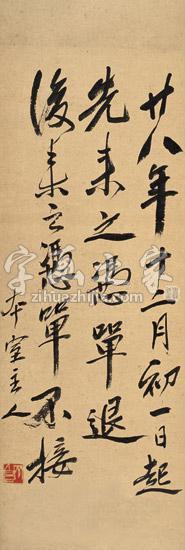 廿八年十二月初一日起
先來之憑單退
後來之憑單不接
本室主人
字画之家